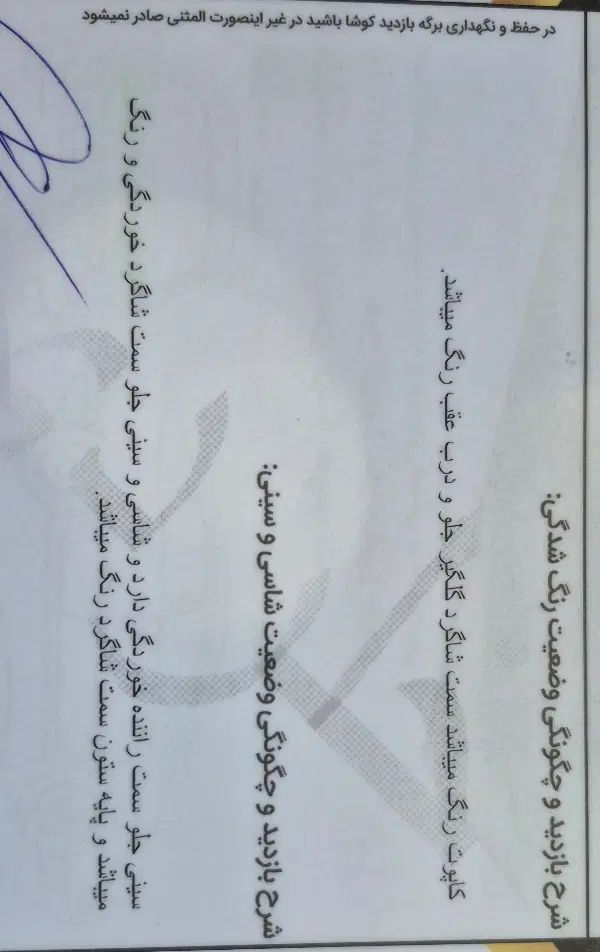 در حفظ و نگهداری برگه بازدید کوشا باشید در غیر اینصورت المثنی صادر نمیشود
شرح بازدید و چگونگی وضعیت رنگ شدگی:
کاپوت رنگ میباشد سمت شاگرد گلگیر جلو و درب عقب رنگ میباشد.
شرح بازدید و چگونگی وضعیت شاسی و سینی:
سینی جلو سمت راننده خوردگی دارد و شاسی و سینی جلو سمت شاگرد خوردگی و رنگ
میباشد و پایه ستون سمت شاگرد رنگ میباشد.